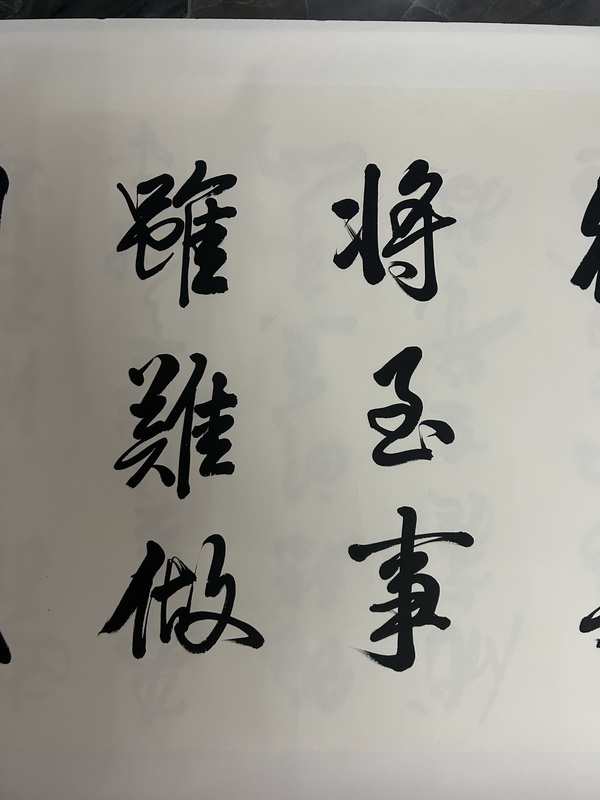 将至事
雖難做